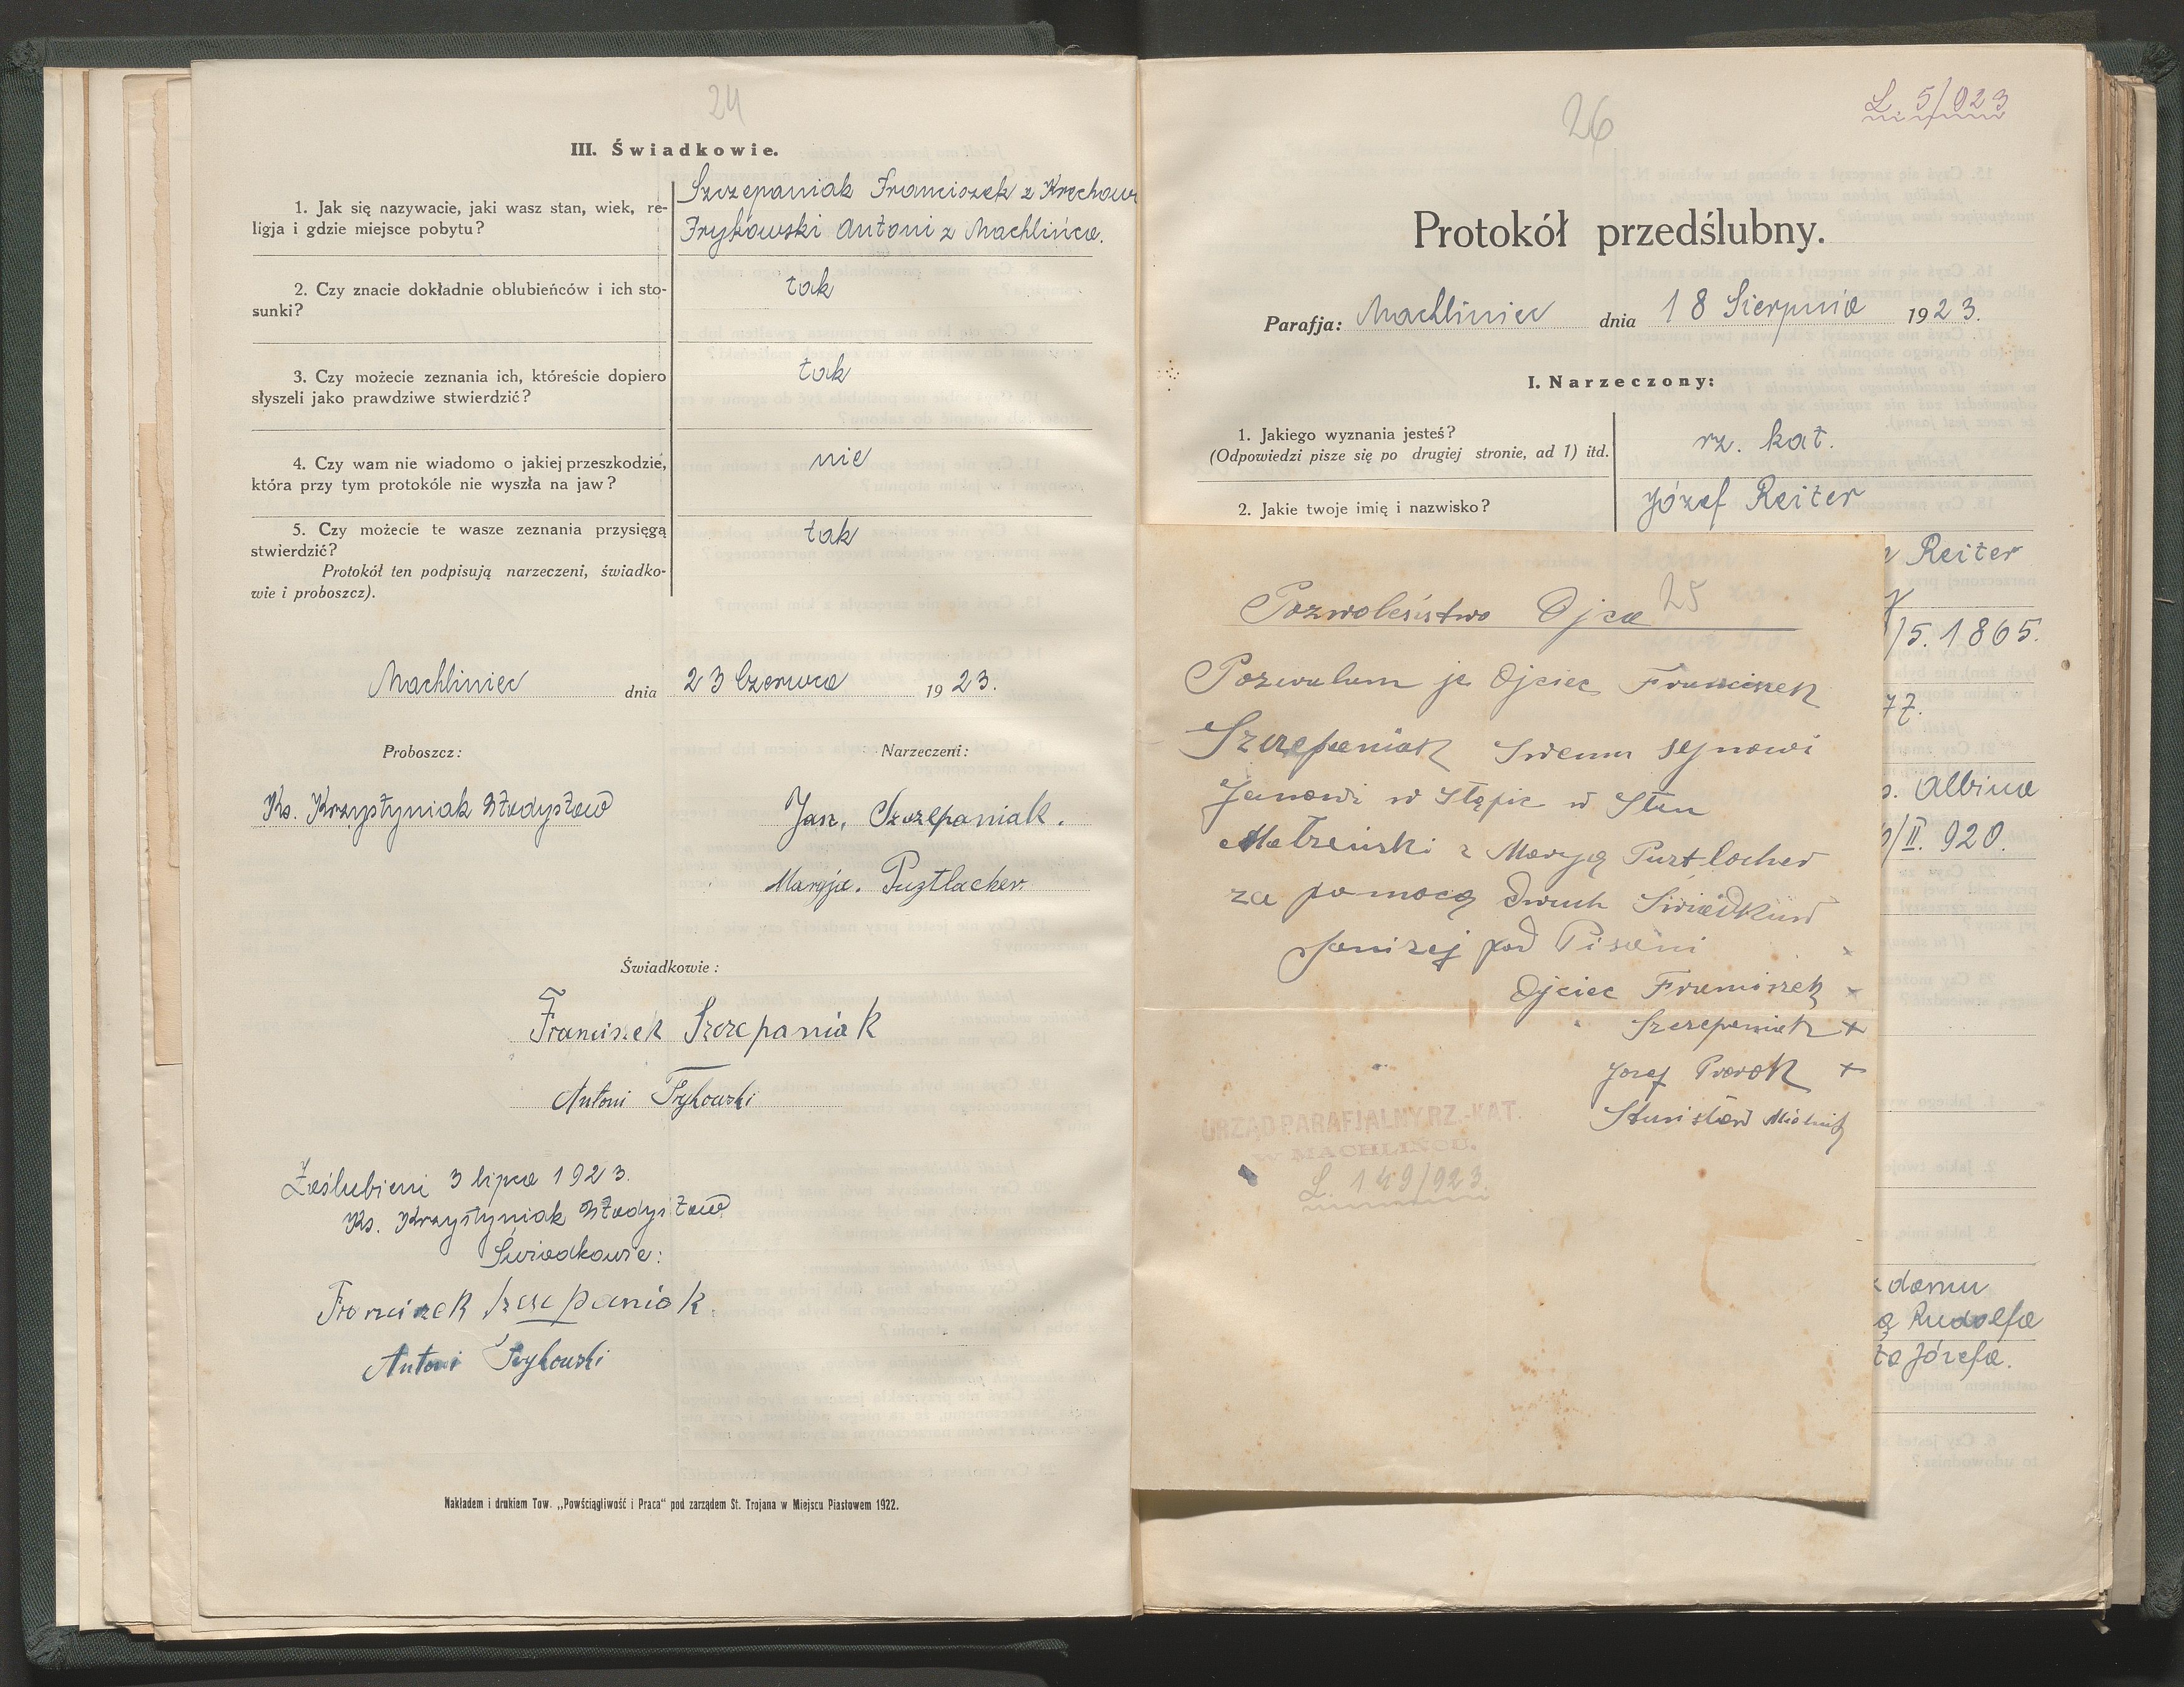 24
III. Świadkowie.
1. Jak się nazywacie, jaki wasz stan, wiek, re-
ligja i gdzie miejsce pobytu?
Szczepaniak Franciszek z Krechow
Frykowski Antoni z Machlińca.
2. Czy znacie dokładnie oblubieńców i ich sto-
sunki?
tak
3. Czy możecie zeznania ich, któreście dopiero
słyszeli jako prawdziwe stwierdzić?
tak
4. Czy wam nie wiadomo o jakiej przeszkodzie,
która przy tym protokóle nie wyszła na jaw?
nie
5. Czy możecie te wasze zeznania przysięgą
stwierdzić?
tak
Protokół ten podpisują narzeczeni, świadko-
wie i proboszcz).
Machliniec dnia 23 Czerwca 1923.
Proboszcz:
Narzeczeni:
Ks. Krzystyniak Władysław
Jan, Szczepaniak.
Maryja. Puztlacher
Świadkowie:
Franciszek Szczepaniak
Antoni Frykowski
Zaślubieni 3 lipca 1923.
Ks. Krzystyniak Władysław
Świadkowie:
Franciszek Szczepaniak.
Antoni Frykowski
Nakładem i drukiem Tow. „Powściągliwość i Praca" pod zarządem St. Trojana w Miejscu Piastowem 1922.
L. 5/923
26
Protokół przedślubny.
Parafja: Machliniec dnia 18 Sierpnia 1923.
I. Narzeczony:
1. Jakiego wyznania jesteś?
(Odpowiedzi pisze się po drugiej stronie, ad 1) itd.
rz. kat.
2. Jakie twoje imię i nazwisko?
Józef Reiter
Reiter
/5. 1865.
77.
Albina
/II. 920.
domu
Rudolfa
Józefa.
25
Pozwoleństwo Ojca
Pozwalam ja Ojciec Franciszek
Szczepaniak Swemu synowi
Janowi w stąpic w Stan
Małzeński z Maryją Puztlocher
za pomocą dwuch Swiadkuw
Janizej pod Pisani
Ojciec Franciszek +
Szczepaniak +
Jozef Prorok +
Stanisław Mielnik
URZĄD PARAFJALNY RZ.-KAT.
W MACHLIŃCU.
L. 149/923.